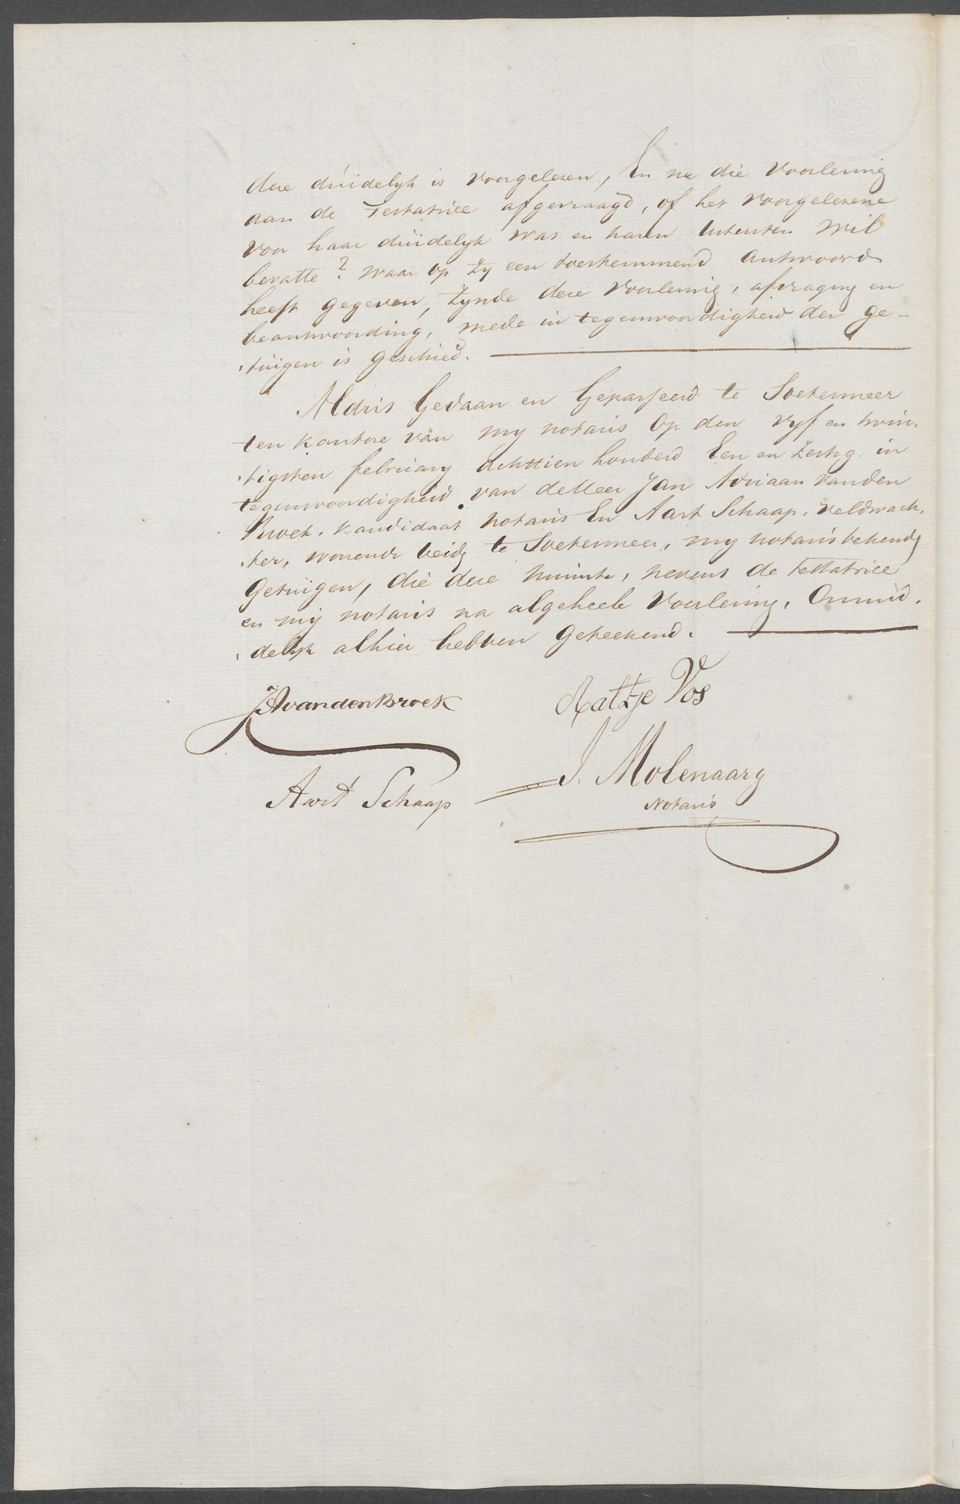 deze duidelyk is voorgelezen, En na die voorlezing
aan de Testatrice afgevraagd, of het voorgelezene
voor haar duidelyk was en haren Uitersten wil
bevatte? waar op zy een toestemmend antwoord
heeft gegeven, zynde deze voorlezing, afvraging en
beantwoording, mede in tegenwoordigheid der ge-
tuigen is geschied.
Aldus Gedaan en Gepasseerd te Soetermeer
ten kantore van my notaris op den vyf en twin,
tigsten february achttien honderd Een en Zestig. in
tegenwoordigheid van de Heer Jan Adriaan vanden
Broek, kandidaat notaris En Aart Schaap, veldwach,
ter, wonende beide te Soetermeer, my notaris bekende
Getuigen, die deze minute, nevens de testatrice
en my notaris na algeheele Voorlezing, Onmid,
delyk alhier hebben geteekend.
JAvandenBroek Aaltje Vos
J. Molenaar
Aart Schaap
Notaris